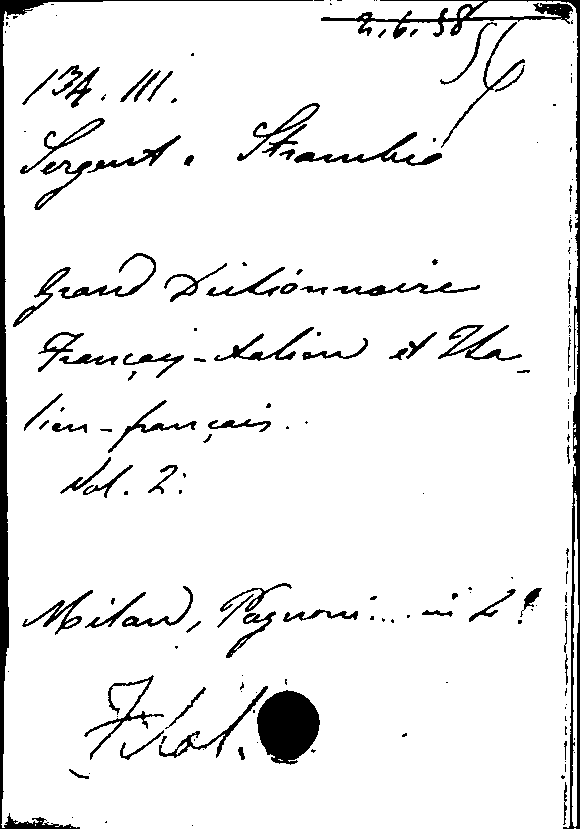 2.6.58
56
134. III.
Sergent. Strambio
Grand Dictionnaire
Françaij-italien et Ita-
lien-français.
Vol. 2.
Milan, Pagnoni.... in 4º
Filol.